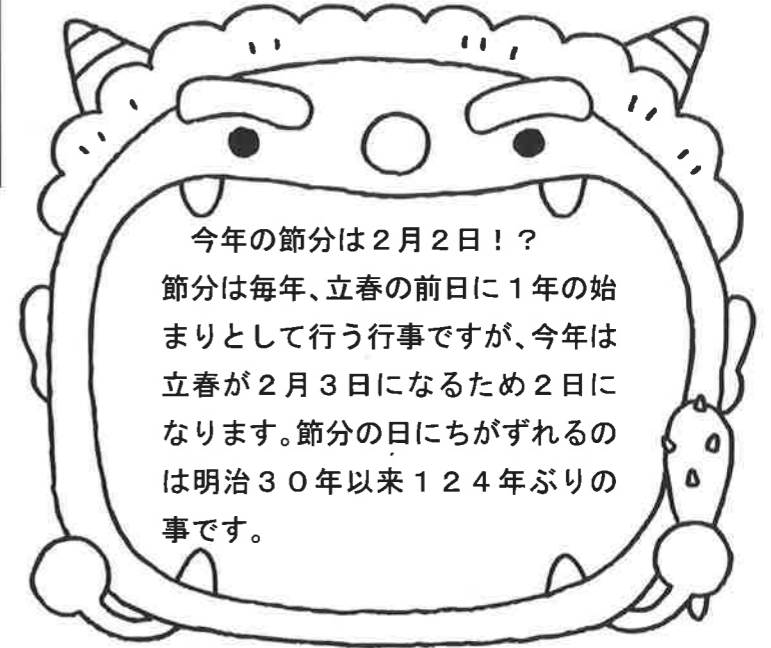 今年の節分は２月２日！？
節分は毎年、立春の前日に１年の始
まりとして行う行事ですが、今年は
立春が２月３日になるため２日に
なります。節分の日にちがずれるの
は明治３０年以来１２４年ぶりの
事です。